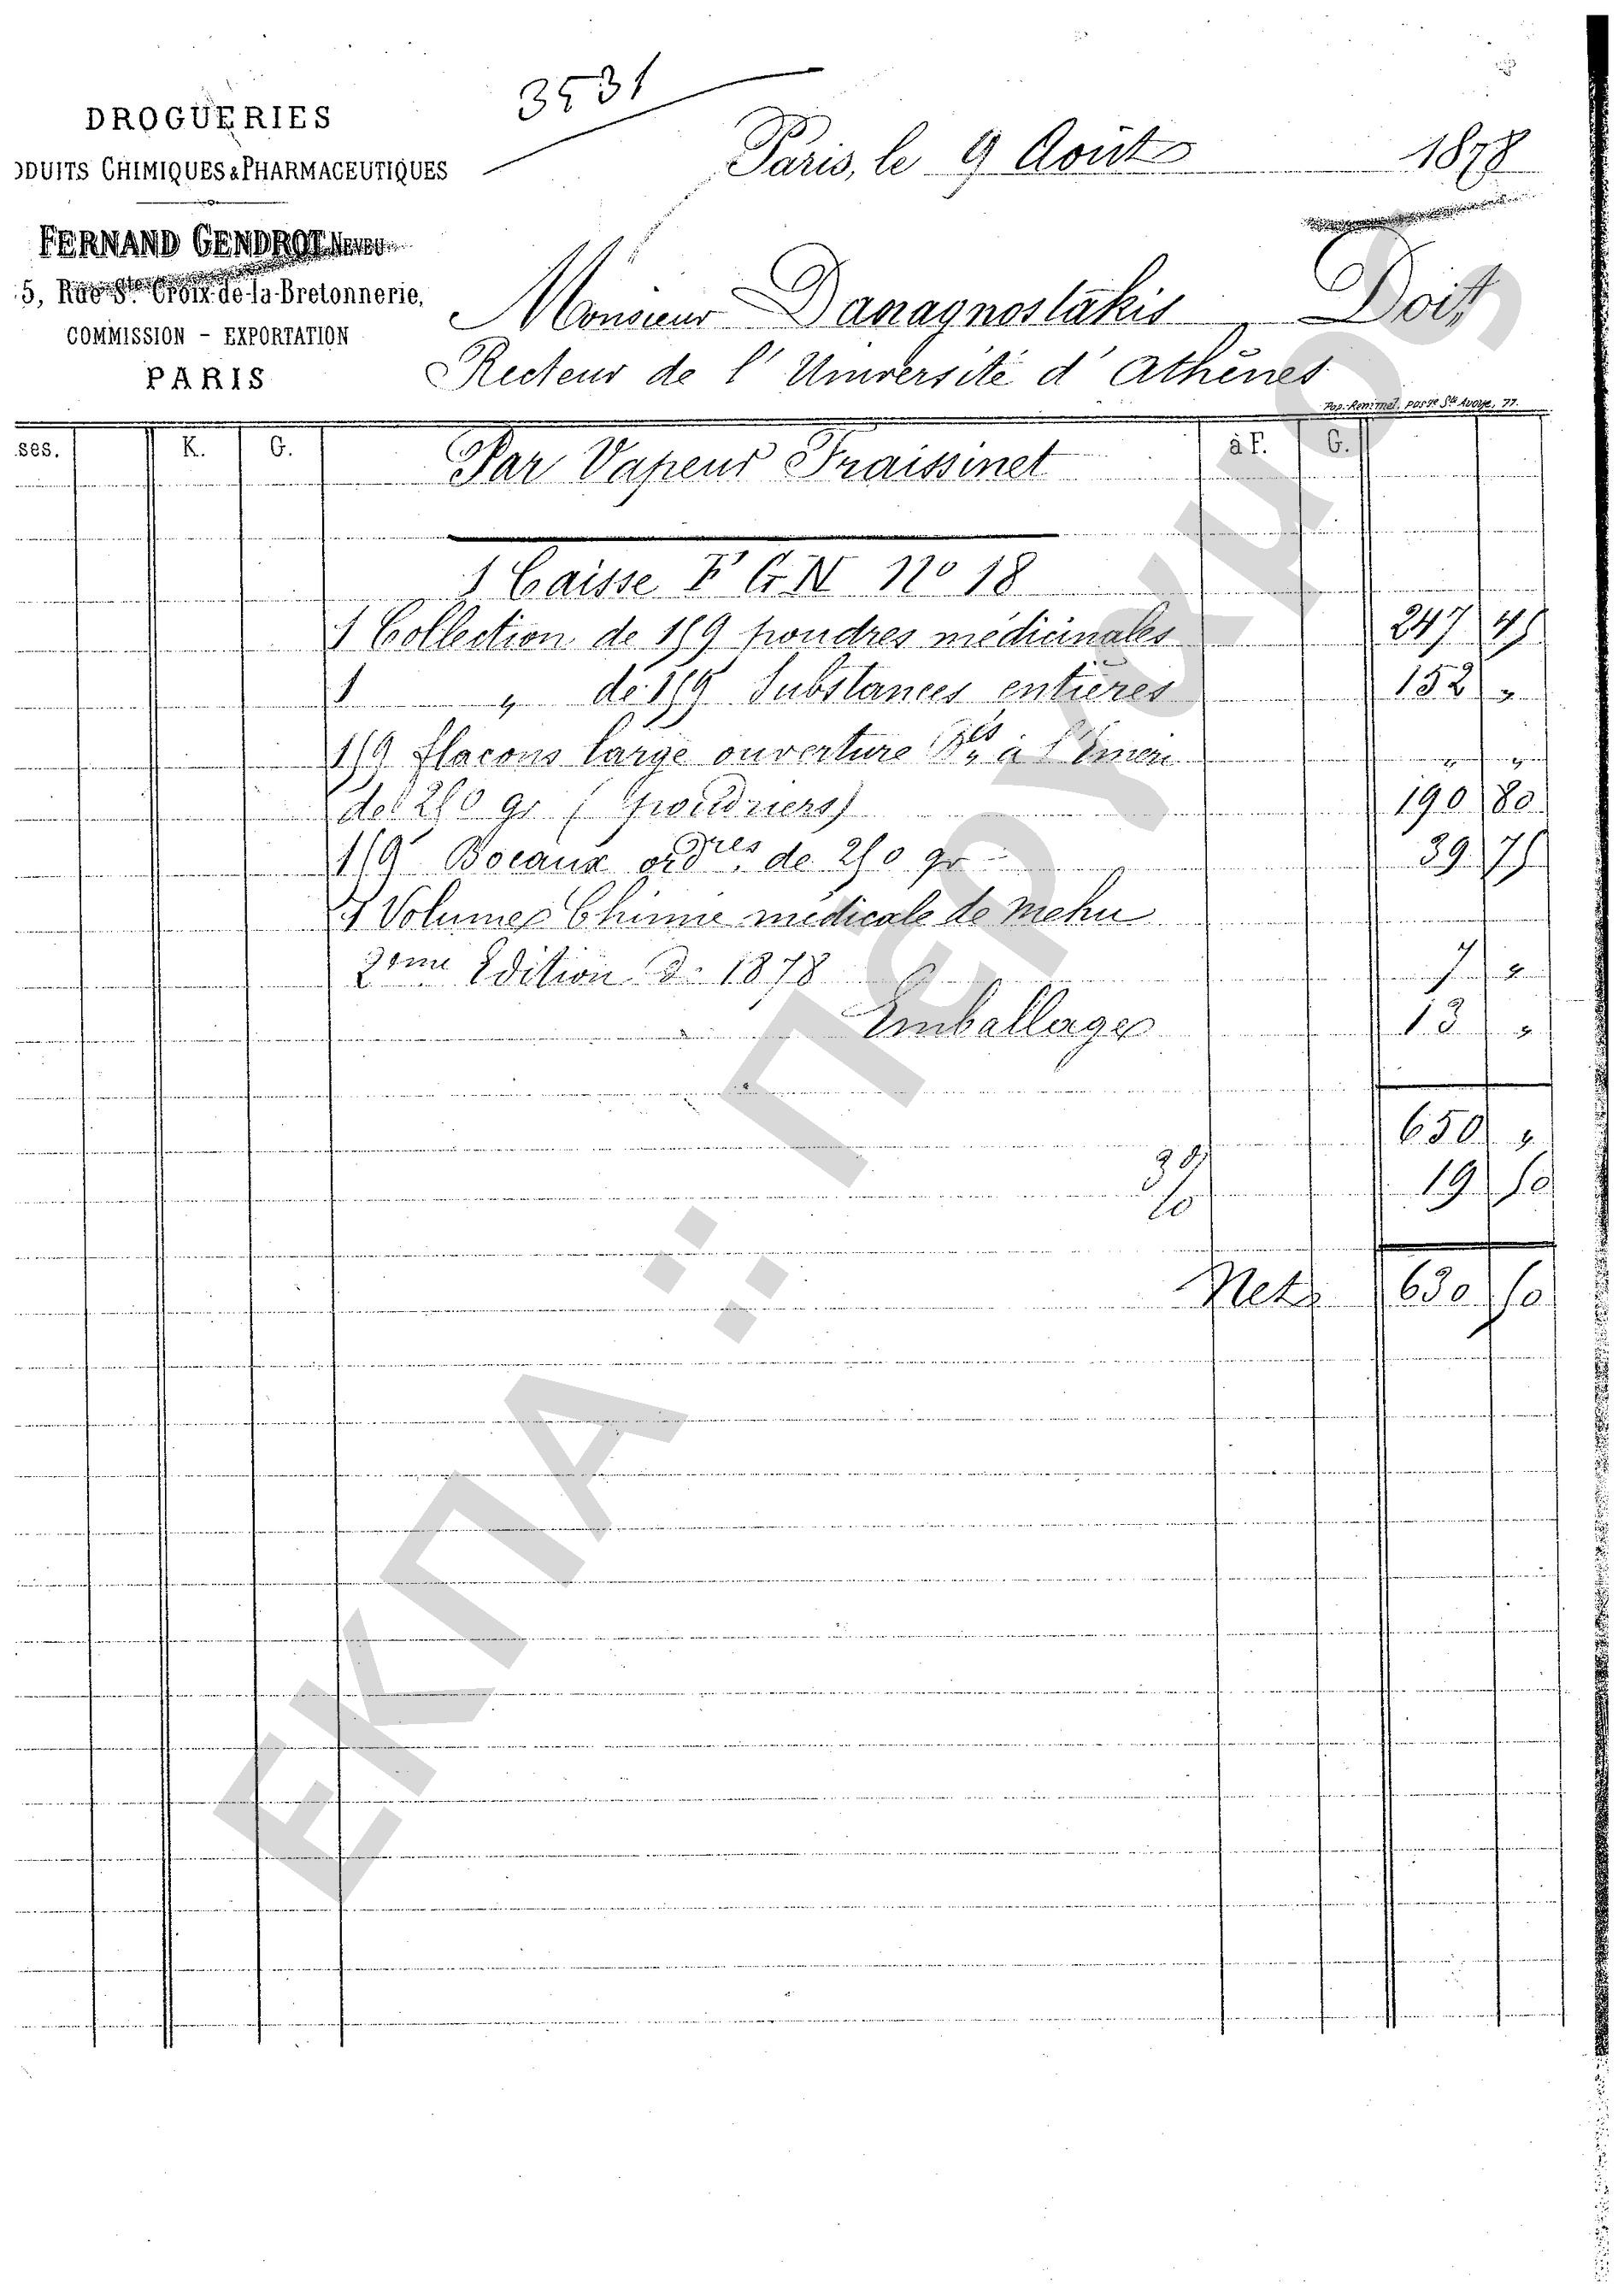 3531
DROGUERIES
ODUITS CHIMIQUES & PHARMACEUTIQUES
FERNAND GENDROT NEVEU
5, Rue Ste Croix-de-la-Bretonnerie,
COMMISSION - EXPORTATION
PARIS
Paris, le 9 Août 1878
Monsieur Danagnostakis Doit
Recteur de l'Université d'Athênes
ses. K. G. à F. G.
Par Vapeur Fraissinet
1 Caisse F G N No 18
1 Collection de 159 poudres médicinales 247 45
1 " de 159 Substances entières 152 "
159 flacons large ouverture Bés à l'Emeri " "
de 250 gr (poudriers) 190 80
159 Bocaux ordres de 250 gr 39 75
1 Volume Chimie médicale de Mehu
2eme Edition de 1878 7 "
Emballage 13 "
650 "
3% 19 50
Net 630 50
ΕΚΠΑ :: Πέργαμος